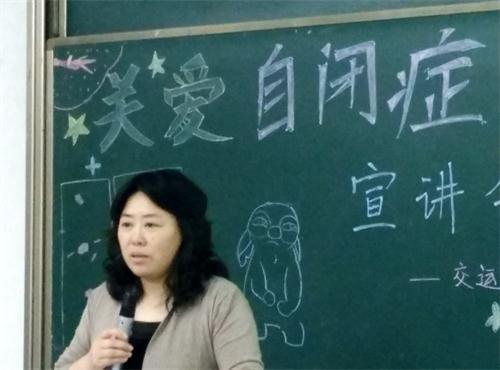 关爱自闭症
宣讲
—交运